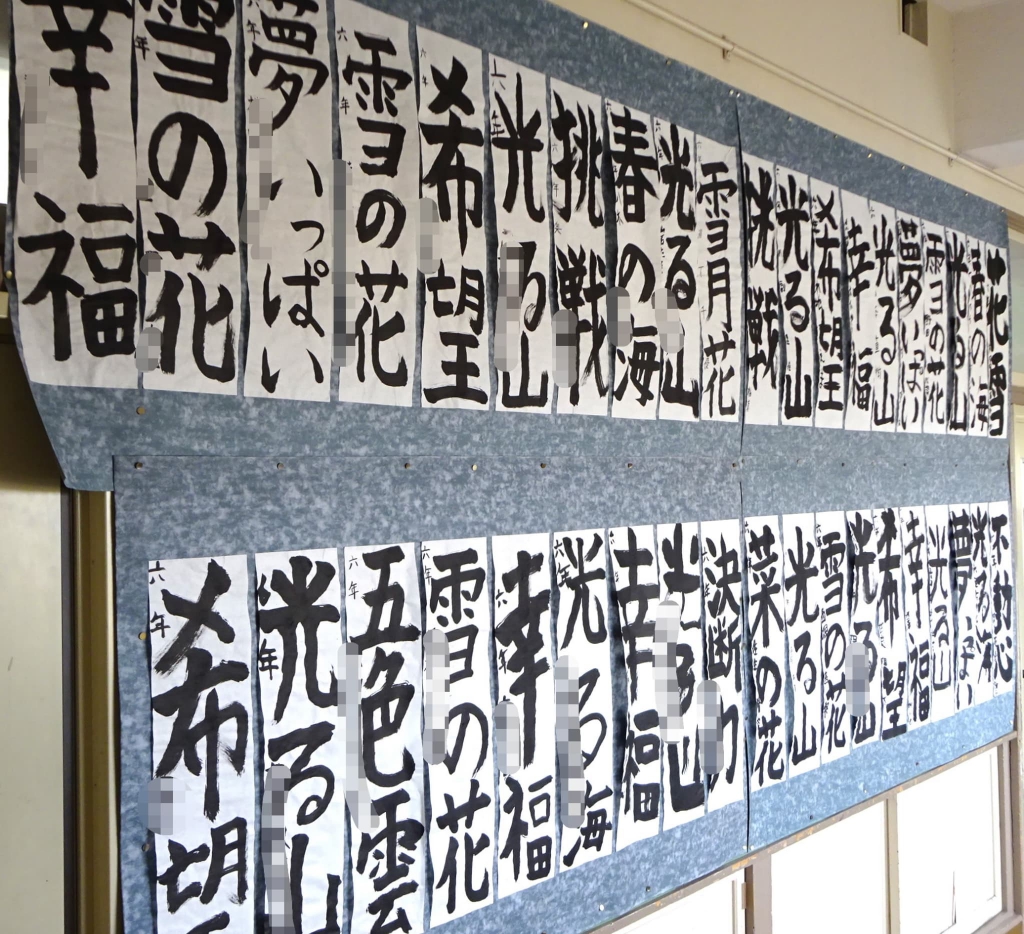 幸福
年
雪の花
六年
夢いっぱい
六年
雪の花
六年
希望
六年
光る山
挑戦
春の海
光る山
雪月花
挑戦
光る山
希望
幸福
光る山
夢いっぱい
雪の花
光る山
春の海
六年
希望
六年
光る山
六年
五色雲
六年
雪の花
六年
幸福
六年
光る海
幸福
光る山
決断力
菜の花
光る山
雪の花
光る山
希望
幸福
光る山
夢いっぱい
光る海
不動心